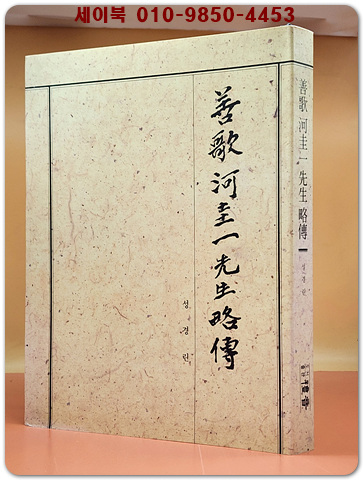 세이북 010-9850-4453
善歌 河圭一 先生 略傳
성경린
善歌 河圭一 先生 略傳
성경린